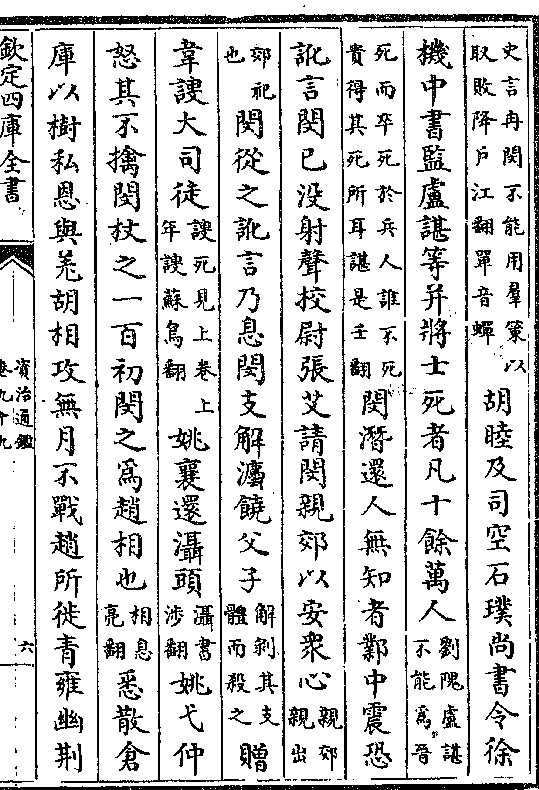 史言冉閔不能用羣策以取敗降戶江翻單音蟬胡睦及司空石璞尚書令徐
機中書監盧諶等并將士死者凡十餘萬人劉隗盧諶不能爲晉
死而卒死於兵人誰不死貴得其死所耳諶是壬翻閔潛還人無知者鄴中震恐
訛言閔已没射聲校尉張艾請閔親郊以安衆心親郊親出
郊祀也閔從之訛言乃息閔支解灋饒父子解剝其支體而殺之贈
韋謏大司徒謏死見上卷上年謏蘇鳥翻姚襄還灄頭灄書涉翻姚弋仲
怒其不擒閔杖之一百初閔之爲趙相也相息亮翻悉散倉
庫以樹私恩與羌胡相攻無月不戰趙所徙青雍幽荆
欽定四庫全書
資治通鑑
卷九十九
六